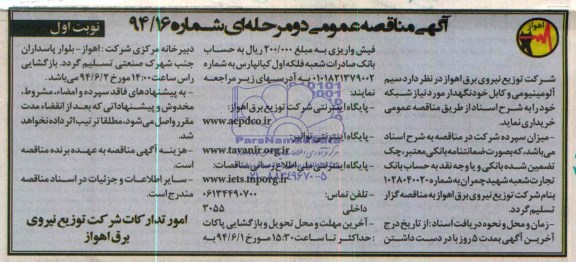 آگهی مناقصه عمومی دو مرحله‌ای شماره ۹۴/۱۶
نوبت اول
اهواز
شرکت توزیع نیروی برق اهواز در نظر دارد سیم
آلومینیومی و کابل خودنگهدار مورد نیاز شبکه
خود را به شرح اسناد از طریق مناقصه عمومی
خریداری نماید.
- میزان سپرده شرکت در مناقصه به شرح اسناد
می‌باشد، که بصورت ضمانتنامه بانکی معتبر، چک
تضمین شده بانکی و یا وجه نقد به حساب بانک
تجارت شعبه شهید چمران به شماره ۱۰۲۸۰۴۰۲۰
بنام شرکت توزیع نیروی برق اهواز به مناقصه گزار
تسلیم گردد.
- زمان و محل و نحوه دریافت اسناد: از تاریخ درج
آخرین آگهی بمدت ۵ روز با در دست داشتن
فیش واریزی به مبلغ ۲۰۰/۰۰۰ ریال به حساب
بانک صادرات شعبه فلکه اول کیانپارس به شماره
۰۱۰۱۸۲۱۳۷۹۰۰۲ به آدرسهای زیر مراجعه
نمایند:
- پایگاه اینترنتی شرکت توزیع برق اهواز:
www.aepdco.ir
- پایگاه اینترنتی توانیر:
www.tavanir.org.ir
- پایگاه اینترنتی ملی اطلاع رسانی مناقصات:
www.iets.mporg.ir
- تلفن تماس: ۰۶۱۳۴۴۹۰۷۰۰
داخلی ۳۰۵۵
- آخرین مهلت و محل تحویل و بازگشایی پاکات
: حداکثر تا ساعت ۱۵:۳۰ مورخ ۹۴/۶/۱ به
دبیرخانه مرکزی شرکت : اهواز - بلوار پاسداران
جنب شهرک صنعتی تسلیم گردد. بازگشایی
راس ساعت ۱۴:۰۰ مورخ ۹۴/۶/۲ می‌باشد.
- به پیشنهادهای فاقد سپرده و امضاء، مشروط،
مخدوش و پیشنهاداتی که بعد از انقضاء مدت
مقرر واصل می‌شود، مطلقا ترتیب اثر داده نخواهد
شد.
- هزینه آگهی مناقصه به عهده برنده مناقصه
است.
- سایر اطلاعات و جزئیات در اسناد مناقصه
مندرج است.
امور تدارکات شرکت توزیع نیروی
برق اهواز
ParsNamadData
۰۲۱-۸۸۳۴۹۶۷۰-۵